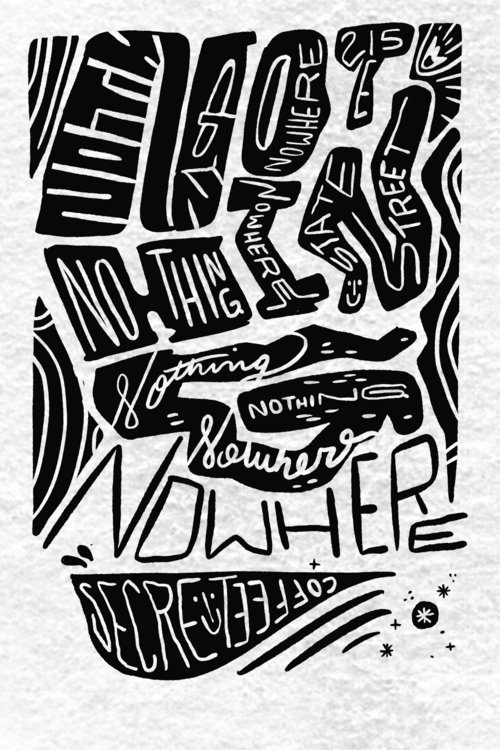 NOWHERE
215
STATE
STREET
NO-THING
Nothing
NOTHING
Nowhere
NOWHERE
SECRET COFFEE